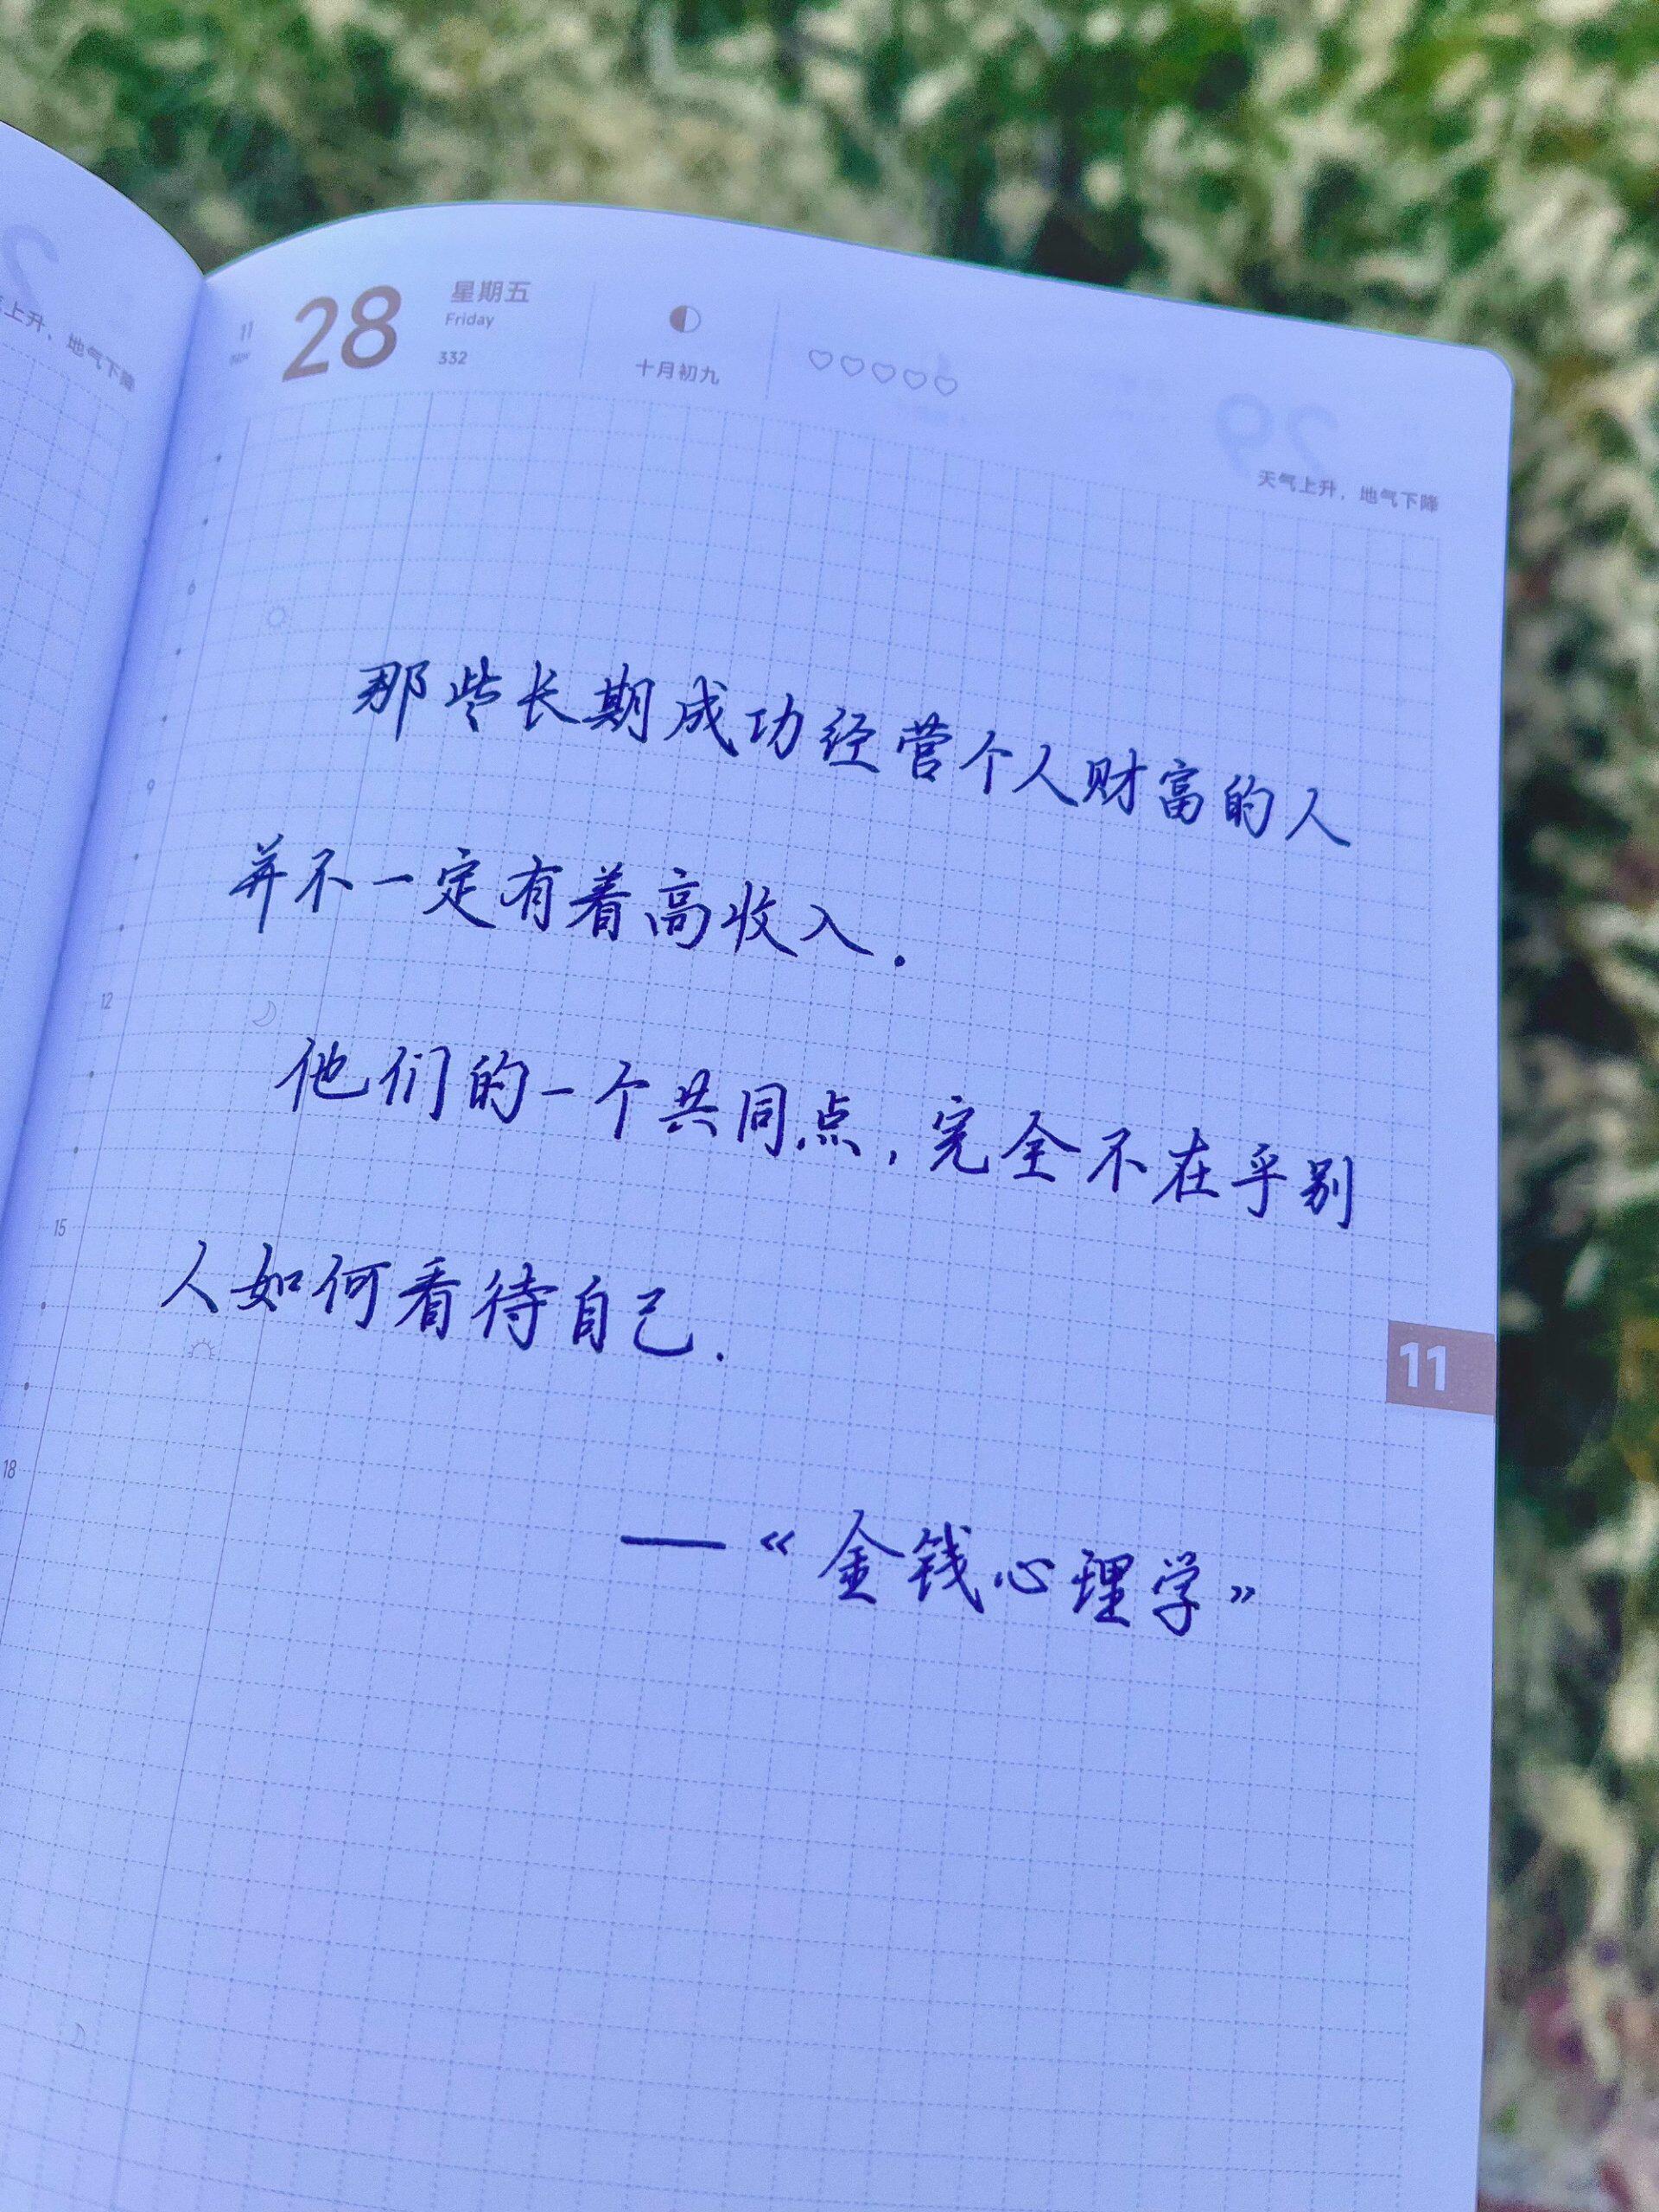 上升，地气下降
11
Nov
28
星期五
Friday
332
十月初九
天气上升，地气下降
6
9
那些长期成功经营个人财富的人
并不一定有着高收入.
12
他们的一个共同点,完全不在乎别
15
人如何看待自己.
11
18
—《金钱心理学》